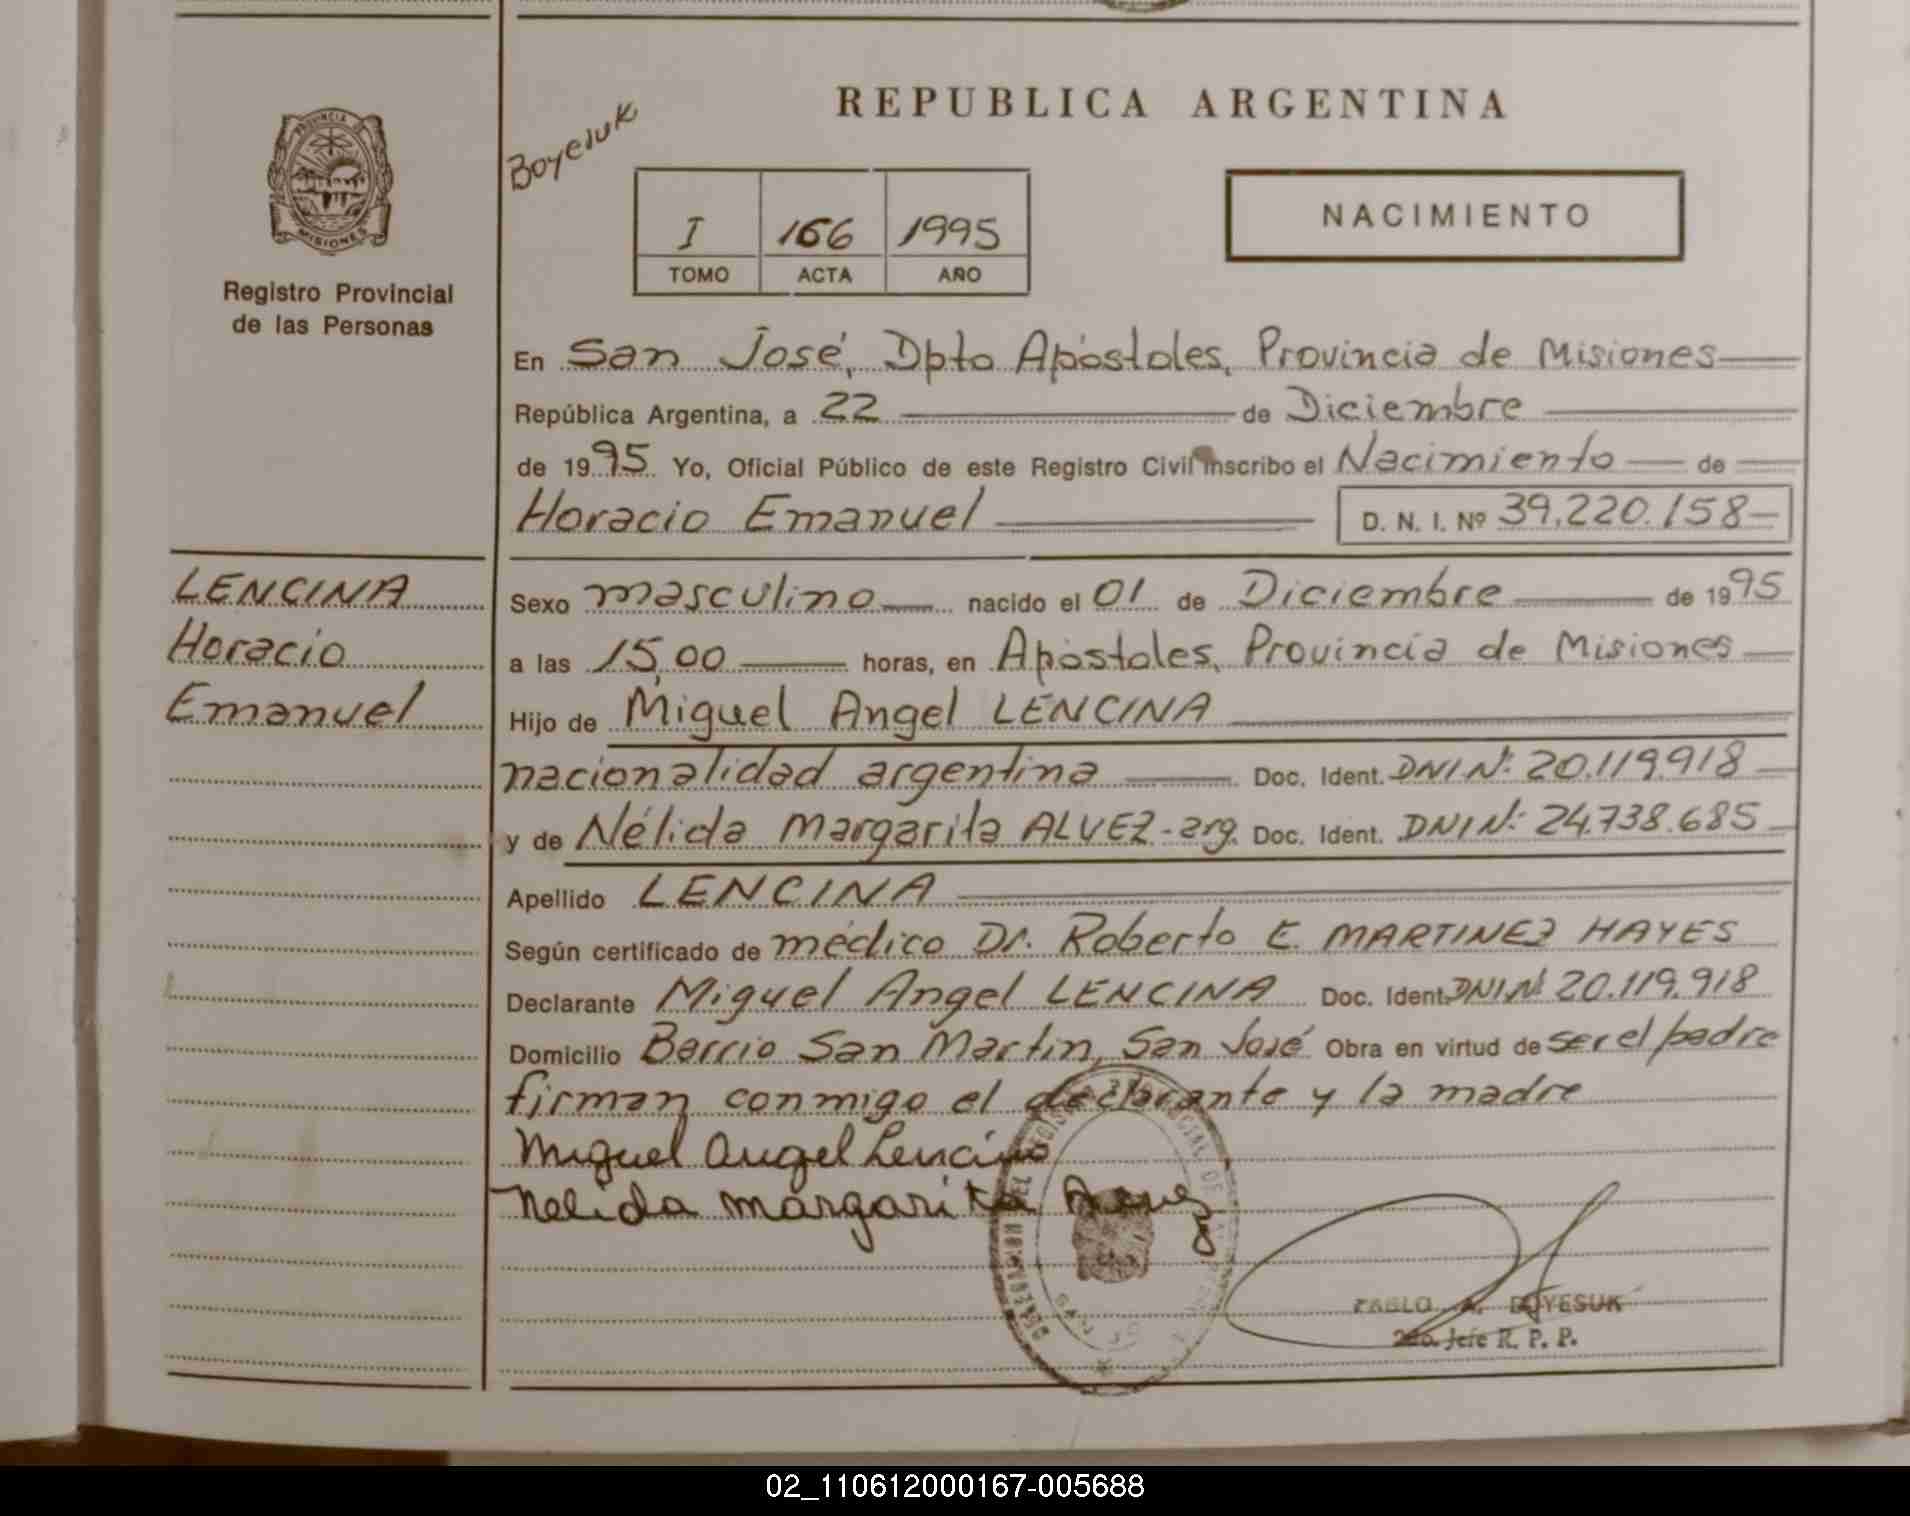 REPUBLICA ARGENTINA
Boyesuk
PROVINCIA DE
MISIONES
Registro Provincial
de las Personas
I 166 1995
TOMO ACTA AÑO
NACIMIENTO
En San José, Dpto Apóstoles, Provincia de Misiones
República Argentina, a 22 de Diciembre
de 1995 Yo, Oficial Público de este Registro Civil inscribo el Nacimiento de
Horacio Emanuel D. N. I. Nº 39.220.158
LENCINA
Horacio
Emanuel
Sexo masculino nacido el 01 de Diciembre de 1995
a las 15,00 horas, en Apóstoles, Provincia de Misiones
Hijo de Miguel Angel LENCINA
nacionalidad argentina Doc. Ident. DNI Nº 20.119.918
y de Nélida Margarita ALVEZ - arg. Doc. Ident. DNI Nº 24.738.685
Apellido LENCINA
Según certificado de médico Dr. Roberto E. MARTINEZ HAYES
Declarante Miguel Angel LENCINA Doc. Ident. DNI Nº 20.119.918
Domicilio Barrio San Martin, San José Obra en virtud de ser el padre
firman conmigo el declarante y la madre
Miguel Angel Lencina
Nelida Margarita
PABLO A. BOYESUK
2do. Jefe R. P. P.
02_110612000167-005688